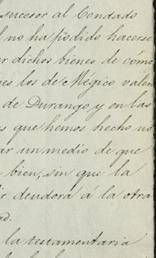 sucesor al Condado
no ha podido hacerse
dichos bienes de cómo
los de Mégico valen
de Durango y en las
que hemos hecho no
ar un medio de que
bien, sin que la
ir deudora á la otra
la testamentaria